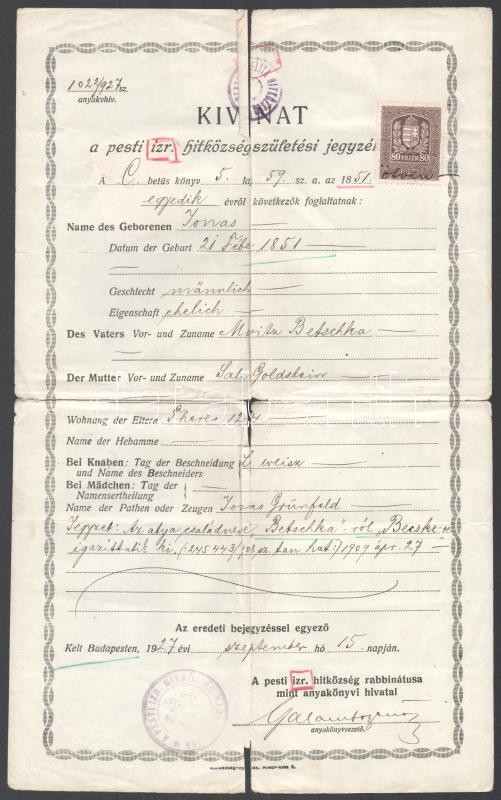 1022/927 sz.
anyakvhiv.
KIVONAT
a pesti izr. hitközség születési jegyzék
80 FILLÉR 80
A C. betüs könyv 5. la, 59. sz. a. az 1851.
egyedik évről következők foglaltatnak:
Name des Geborenen Jonas
Datum der Geburt 21 Febr 1851
Geschlecht männlich
Eigenschaft ehelich
Des Vaters Vor- und Zuname Moritz Betschka
Der Mutter Vor- und Zuname Sal. Goldstein
Wohnung der Eltern Theres
Name der Hebamme
Bei Knaben: Tag der Beschneidung L. Weisz
und Name des Beschneiders
Bei Mädchen: Tag der
Namensertheilung
Name der Pathen oder Zeugen Jonas Grünfeld
Jegyzet: Az atya családneve „Betschka"-ról „Becske"-re
igazittatik ki. (245443/908. sz. tan. hat.) 1909 ápr. 27
Az eredeti bejegyzéssel egyező
Kelt Budapesten, 1927 évi szeptember hó 15. napján.
A pesti izr. hitközség rabbinátusa
mint anyakönyvi hivatal
anyakönyvvezető.